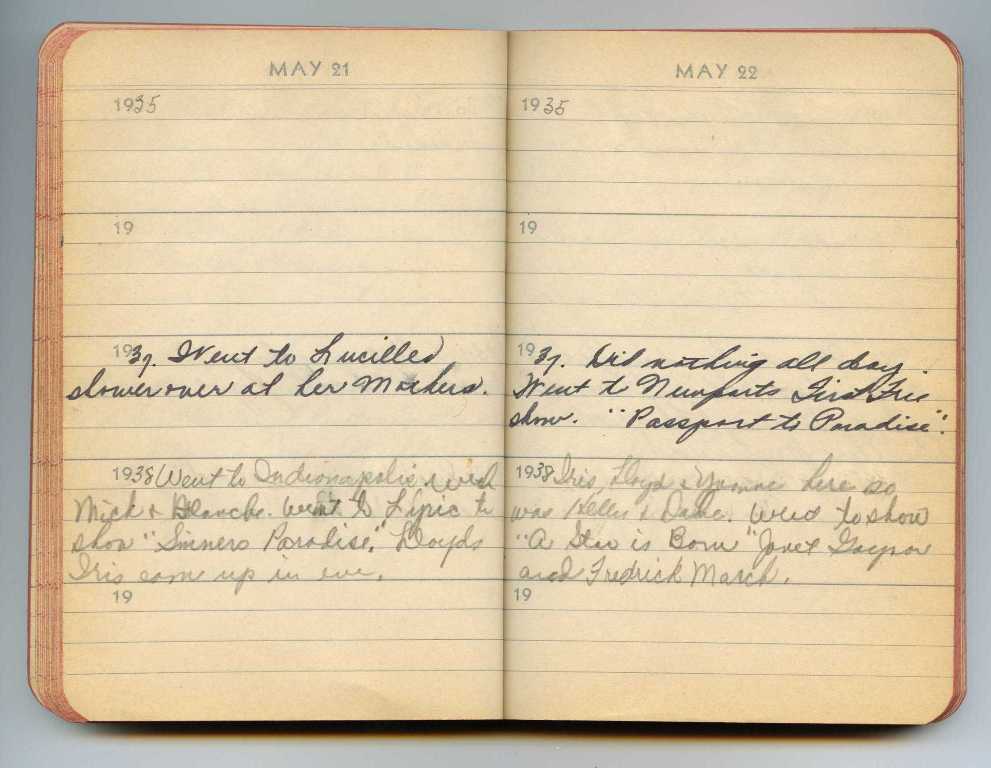 MAY 21
1935
19
1937. Went to Lucilles
shower over at her Mothers.
1938 Went to Indianapolis with
Mick & Blanche. Went to Lyric to
show "Sinners Paradise". Lloyds
Iris came up in eve.
19
MAY 22
1935
19
1937. Did nothing all day.
Went to Newports First Free
show. "Passport to Paradise".
1938 Iris Lloyd & Yvonne here so
was Kelly & Dane. Went to show
"A Star is Born" Janet Gaynor
and Fredrick March.
19